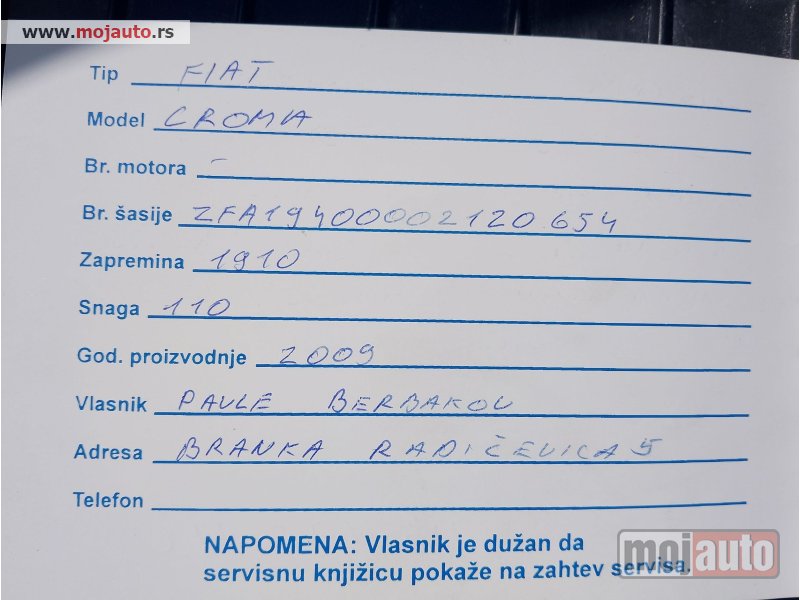 www.mojauto.rs
Tip FIAT
Model CROMA
Br. motora -
Br. šasije ZFA19400002120654
Zapremina 1910
Snaga 110
God. proizvodnje 2009
Vlasnik PAVLE BERBAKOV
Adresa BRANKA RADIČEVIĆA 5
Telefon
NAPOMENA: Vlasnik je dužan da
servisnu knjižicu pokaže na zahtev servisa.
mojauto